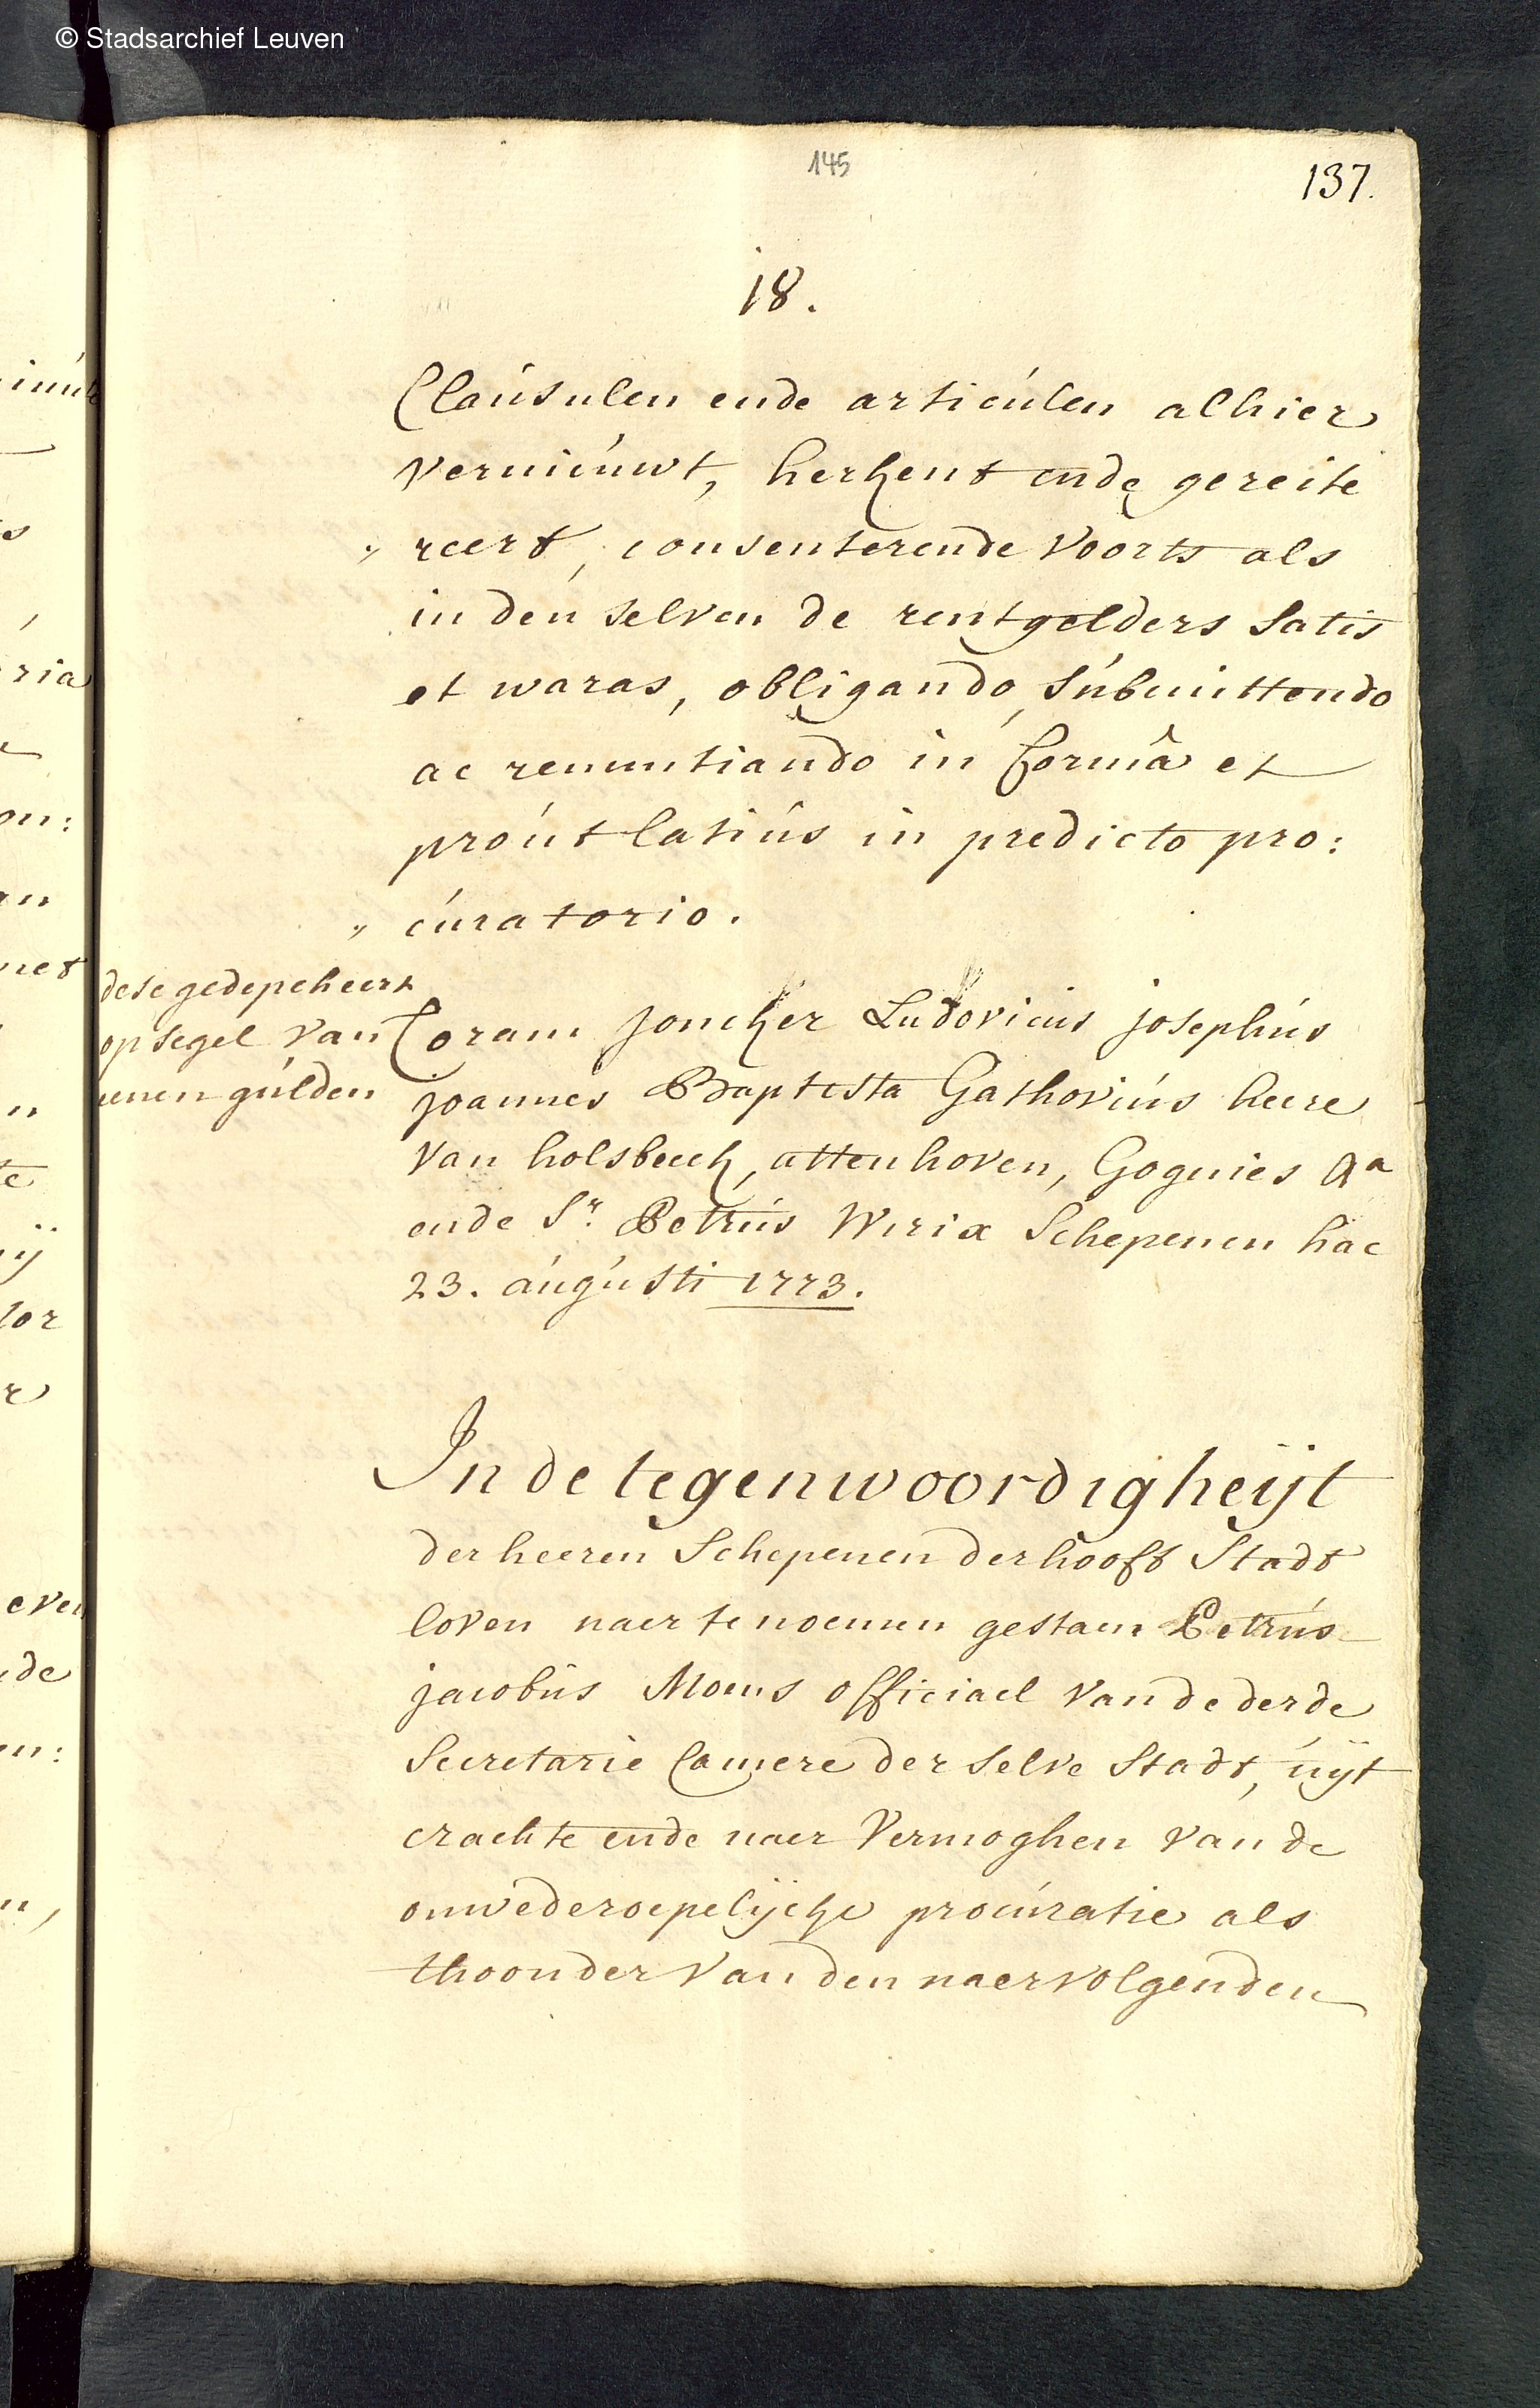 © Stadsarchief Leuven
145
137.
18.
Clausulen ende articulen alhier
vernieuwt, herkent ende gereite
" reert, consenterende voorts als
in den selven de rentgelders satis
et waras, obligando, submittendo
ac renuntiando in formâ et
prout latius in predicto pro:
" curatorio.
dese gedepeheert
op segel van
eenen gulden
Coram Joncker Ludovicus josephus
joannes Baptista Gathovius heere
van holsbeeck, attenhoven, Gognies &a
ende Sr. Petrus Wirix Schepenen hac
23. augusti 1773.
In de tegenwoordigheijt
der heeren Schepenen der hooft Stadt
loven naer te noemen gestaen Petrus
jacobus Moens officiael van de derde
Secretarie Camere der selve Stadt, uijt
crachte ende naer vermoghen van de
onwederoepelijcke procuratie als
thoonder van den naervolgenden